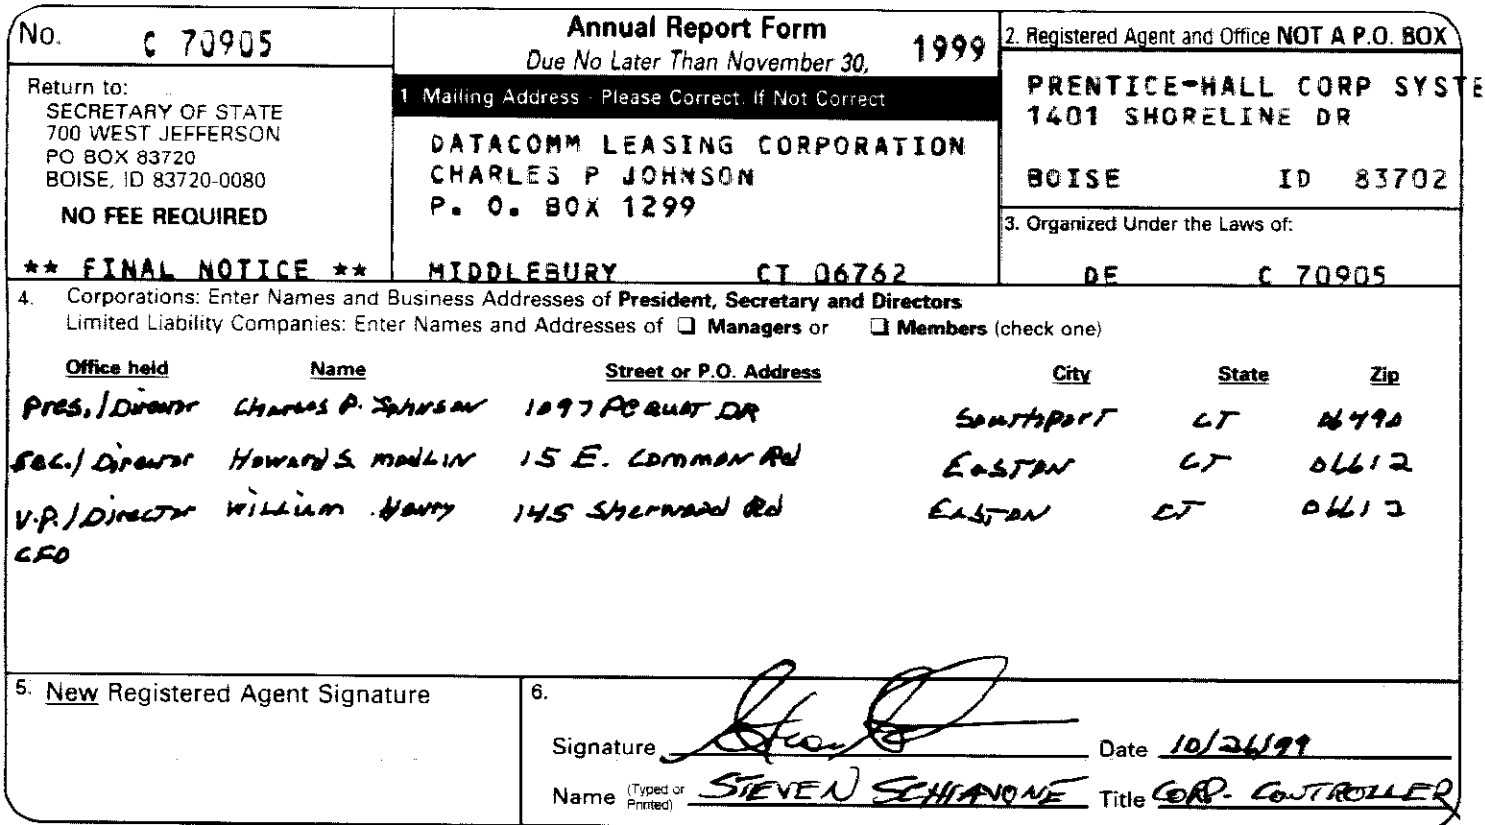 No. C 70905
Return to:
SECRETARY OF STATE
700 WEST JEFFERSON
PO BOX 83720
BOISE, ID 83720-0080
NO FEE REQUIRED
** FINAL NOTICE **
Annual Report Form
Due No Later Than November 30, 1999
1 Mailing Address - Please Correct, If Not Correct
DATACOMM LEASING CORPORATION
CHARLES P JOHNSON
P. O. BOX 1299
MIDDLEBURY CT 06762
2. Registered Agent and Office NOT A P.O. BOX
PRENTICE-HALL CORP SYSTE
1401 SHORELINE DR
BOISE ID 83702
3. Organized Under the Laws of:
DE C 70905
4. Corporations: Enter Names and Business Addresses of President, Secretary and Directors
Limited Liability Companies: Enter Names and Addresses of ❏ Managers or ❏ Members (check one)
Office held Name Street or P.O. Address City State Zip
Pres./Director Charles P. Johnson 1097 Pequot DR Southport CT 06490
Sec./Director Howard S. Modlin 15 E. Common Rd Easton CT 06612
V.P./Director William Henry 145 Sherwood Rd Easton CT 06612
CFO
5. New Registered Agent Signature
6.
Signature Date 10/26/99
Name (Typed or Printed) STEVEN SCHIAVONE Title CORP. CONTROLLER